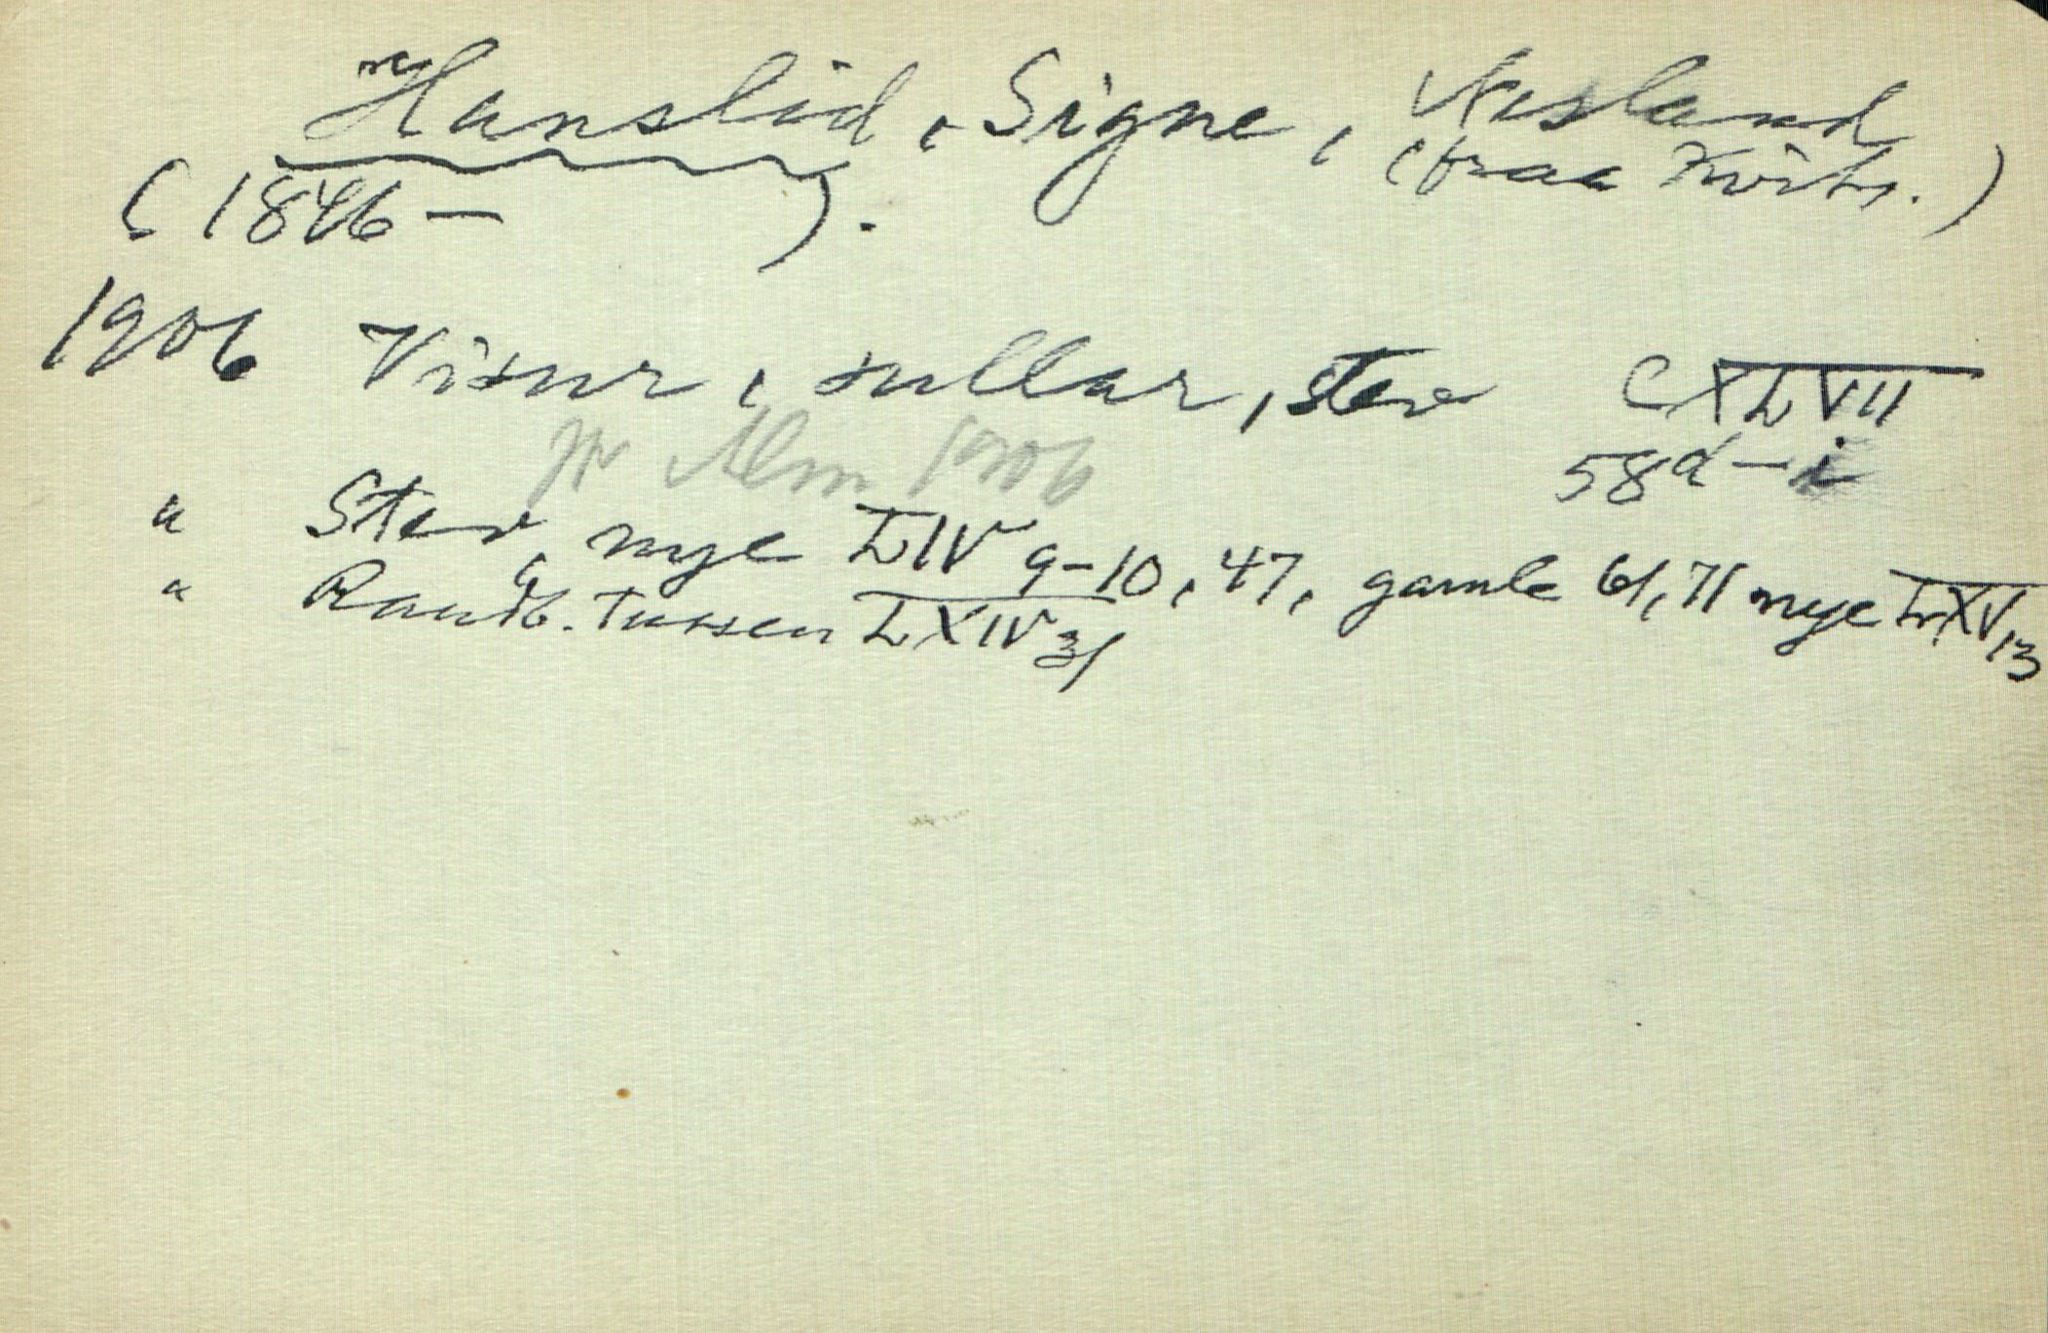 Hanslid, Signe, Aisland
(fraa Kvits.)
(1846 – ).
1906 Visur, sullar, stev CXLVII
58d–i
jfr Alm 1906
" Stev, nye LIV 9–10, 47, gamle 61, 71 nye LXV 13
" Raudb. tussen LXIV 31